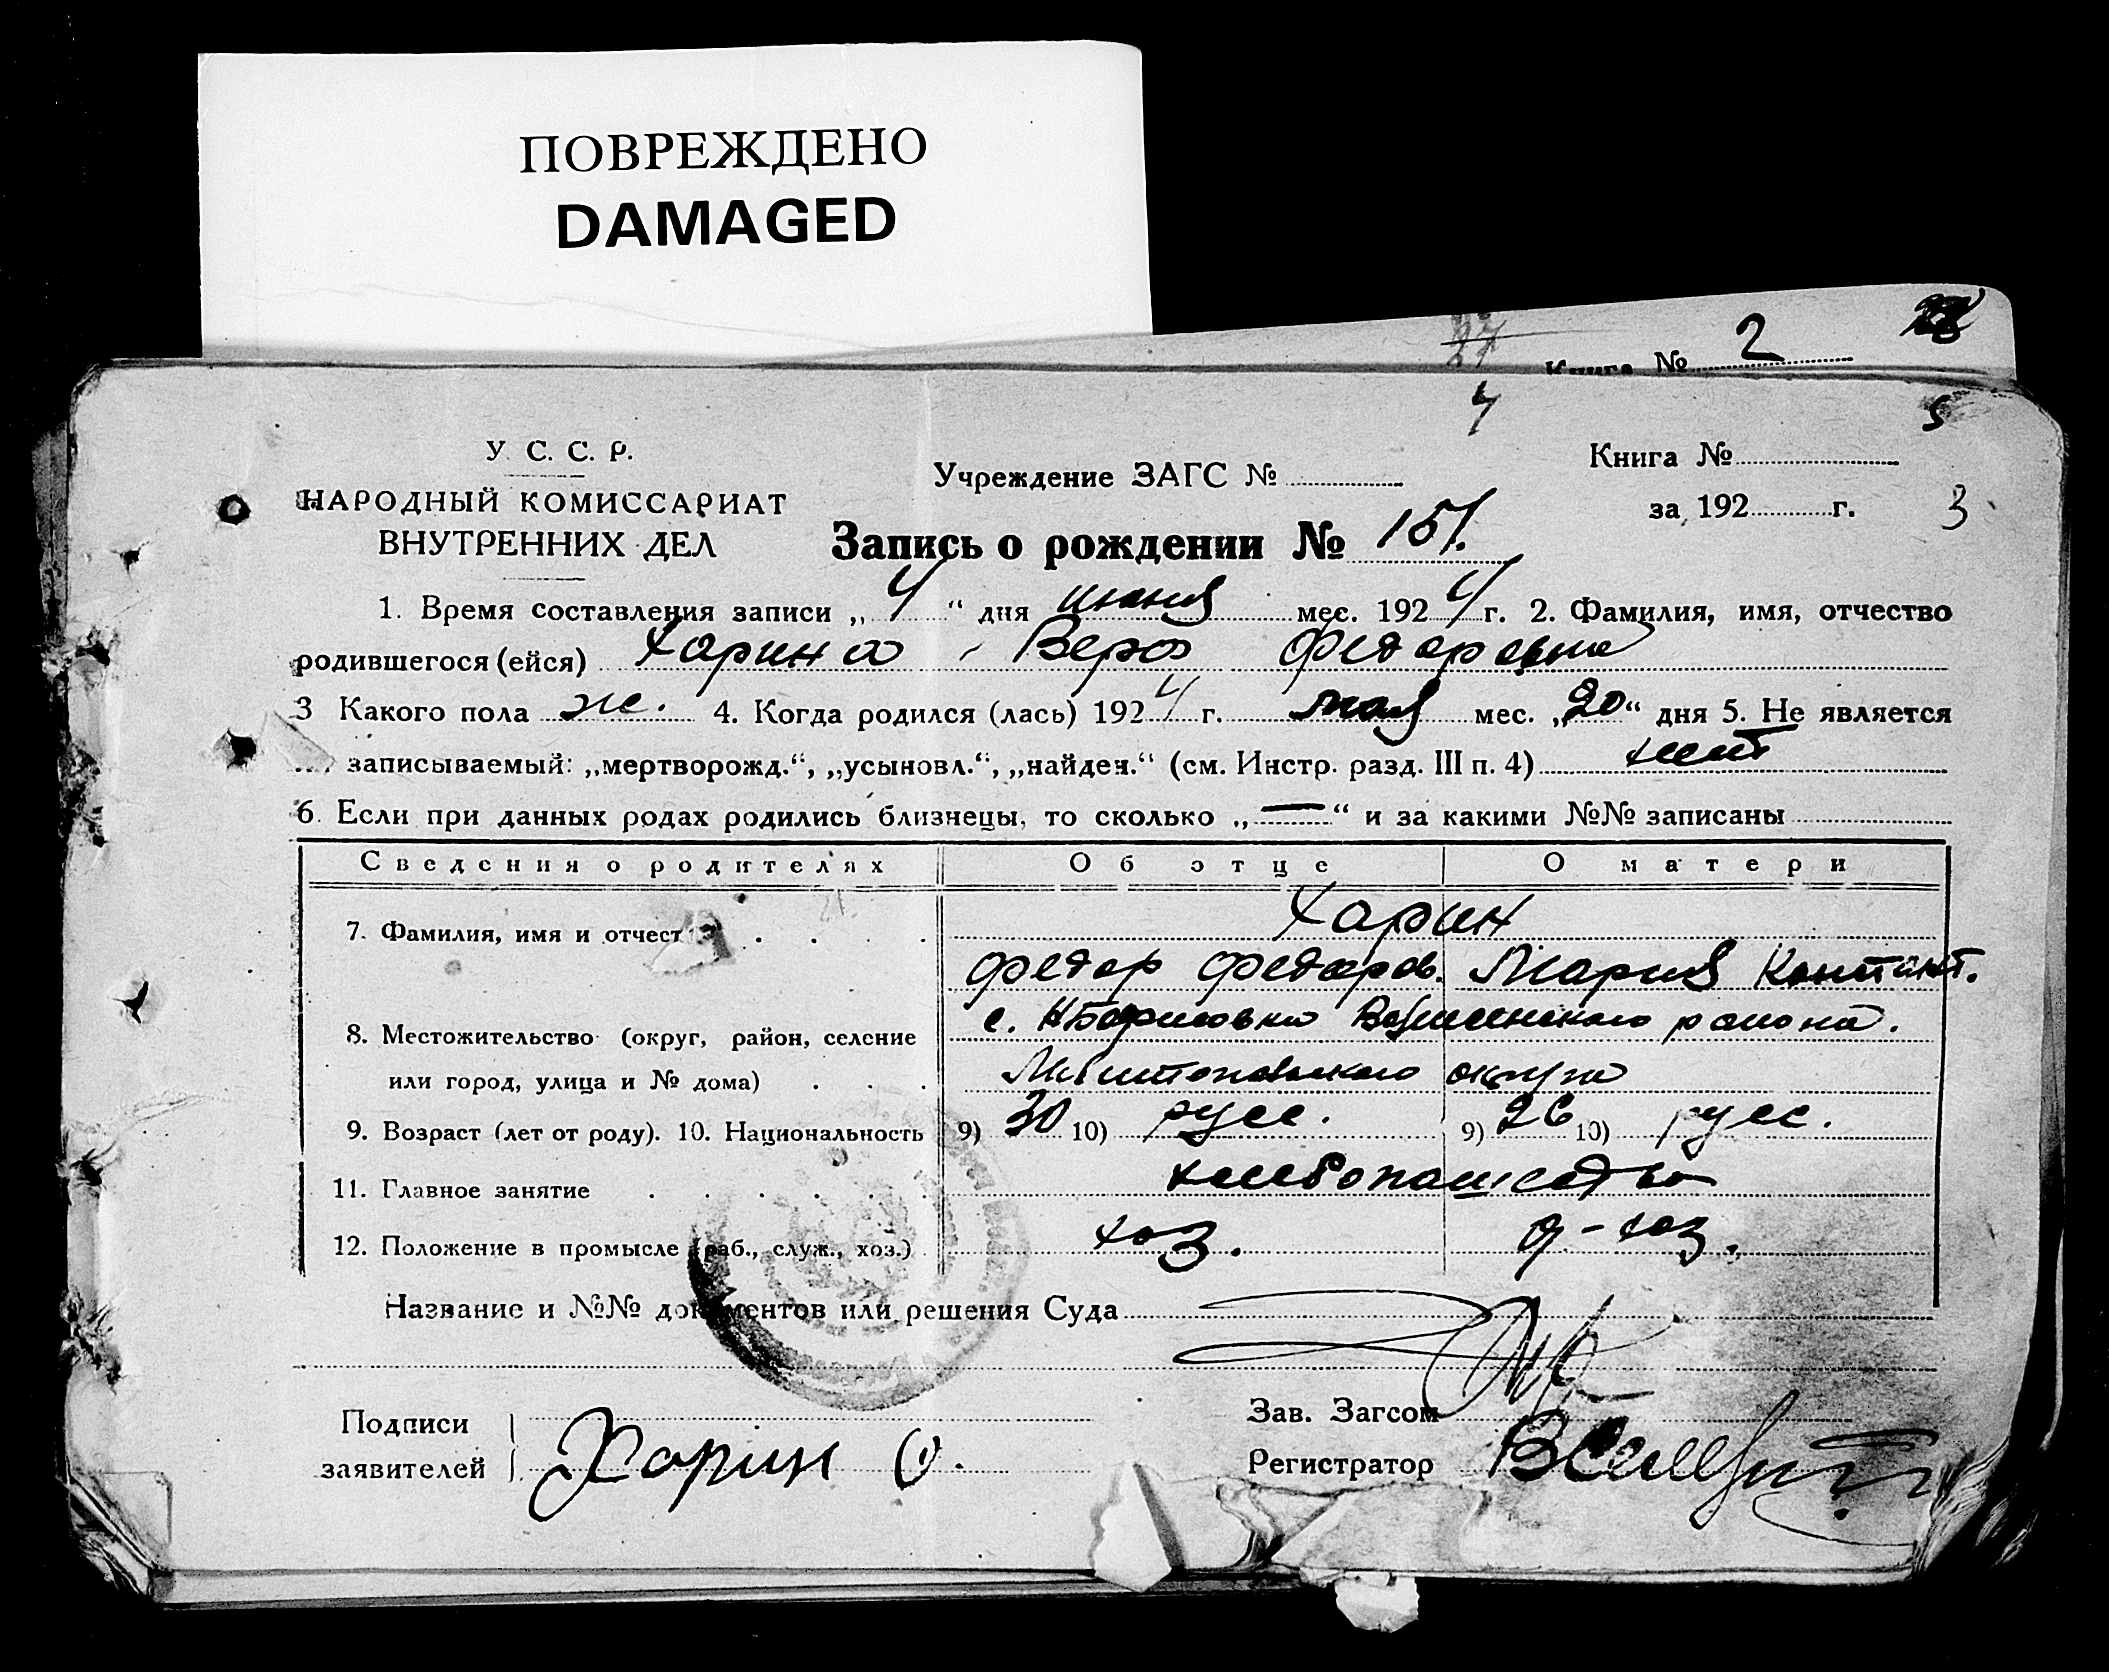 ПОВРЕЖДЕНО
DAMAGED
27
Книга № 2
4
5
У. С. С. Р.
НАРОДНЫЙ КОМИССАРИАТ
ВНУТРЕННИХ ДЕЛ
Учреждение ЗАГС №
Книга №
за 192 г.
3
Запись о рождении № 151.
1. Время составления записи „ 4 “ дня июня мес. 192 4 г. 2. Фамилия, имя, отчество
родившегося (ейся) Харина Вера Федоровна
3 Какого пола ж. 4. Когда родился (лась) 192 4 г. мая мес. „20“ дня 5. Не является
записываемый: „мертворожд.“, „усыновл.“, „найден.“ (см. Инстр. разд. III п. 4) нет
6. Если при данных родах родились близнецы, то сколько „ — “ и за какими №№ записаны
Сведения о родителях Об отце О матери
7. Фамилия, имя и отчест Харин
Федор Федоров. Мария Констант.
8. Местожительство (округ, район, селение с. НБорисовки района.
или город, улица и № дома) Мелитопольского округа
9. Возраст (лет от роду). 10. Национальность 9) 30 10) русс. 9) 26 10) русс.
11. Главное занятие хлебопашество
12. Положение в промысле (раб., служ., хоз.) хоз. д-хоз.
Название и №№ документов или решения Суда
Подписи
заявителей Харин
Зав. Загсом
Регистратор